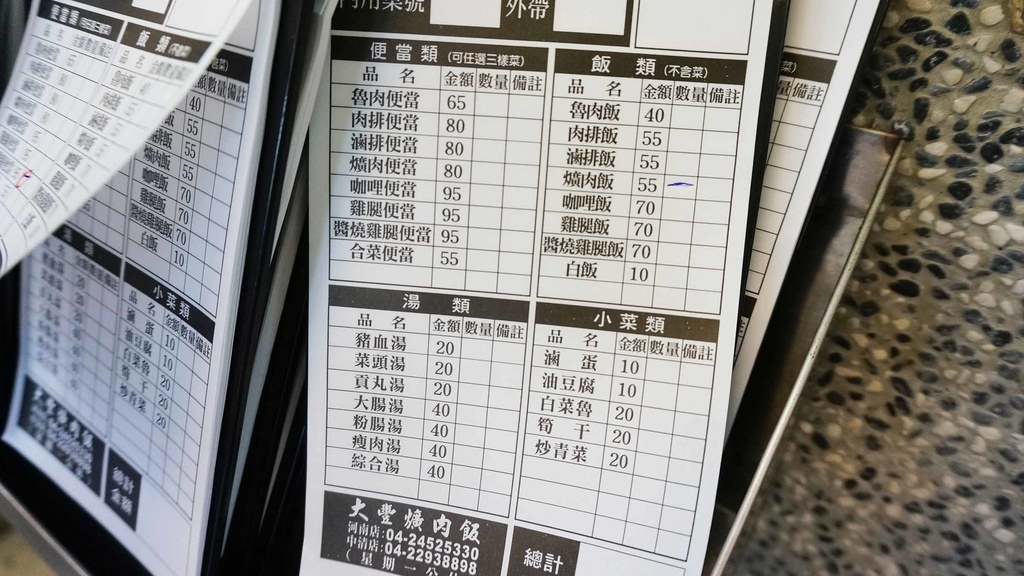 內用桌號 外帶
便當類 (可任選三樣菜)
品 名 金額 數量 備註
魯肉便當 65
肉排便當 80
滷排便當 80
爌肉便當 80
咖哩便當 95
雞腿便當 95
醬燒雞腿便當 95
合菜便當 55
飯 類 (不含菜)
品 名 金額 數量 備註
魯肉飯 40
肉排飯 55
滷排飯 55
爌肉飯 55
咖哩飯 70
雞腿飯 70
醬燒雞腿飯 70
白飯 10
湯 類
品 名 金額 數量 備註
豬血湯 20
菜頭湯 20
貢丸湯 20
大腸湯 40
粉腸湯 40
瘦肉湯 40
綜合湯 40
小菜類
品 名 金額 數量 備註
滷 蛋 10
油豆腐 10
白菜魯 20
筍 干 20
炒青菜 20
大豐爌肉飯
河南店:04-24525330
中清店:04-22938898
(星期一公休
總計
飯 類
金額 數量 備註
40
55
55
爌肉飯 55
咖哩飯 70
雞腿飯 70
醬燒雞腿飯 70
白飯 10
小菜類
品 名 金額 數量 備註
滷 蛋 10
油豆腐 10
白菜魯 20
筍 干 20
炒青菜 20
總計